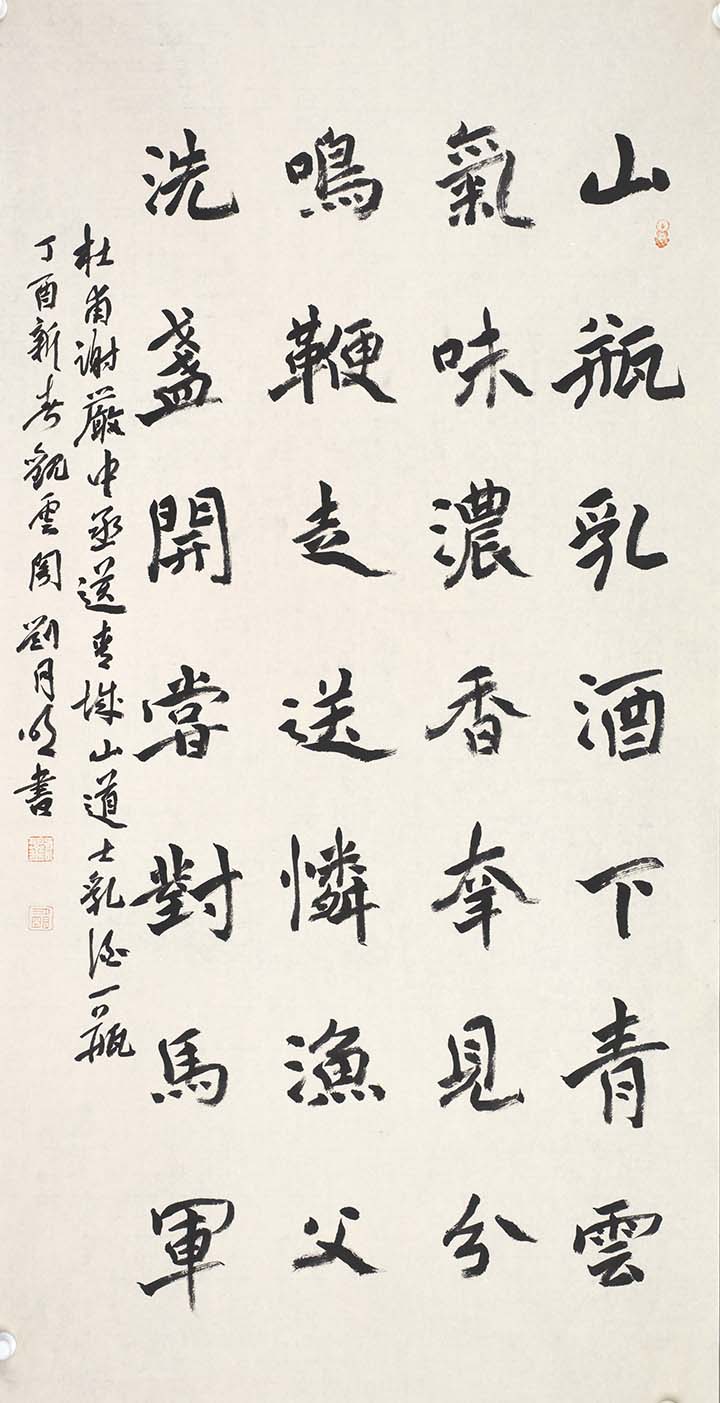 山瓶乳酒下青雲
氣味濃香幸見分
鳴鞭走送憐漁父
洗盞開嘗對馬軍
杜甫謝嚴中丞送青城山道士乳酒一瓶
丁酉新春觀雲閣劉月明書